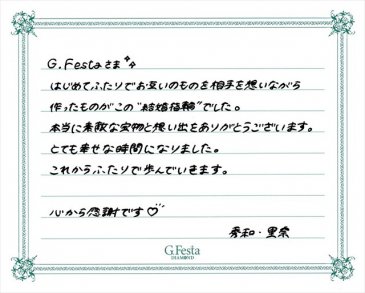 G.Festaさま
はじめてふたりでお互いのものを相手を想いながら
作ったものがこの"結婚指輪"でした。
本当に素敵な宝物と想い出をありがとうございます。
とても幸せな時間になりました。
これからふたりで歩んでいきます。
心から感謝です♡
秀和・里奈
G.Festa
DIAMOND